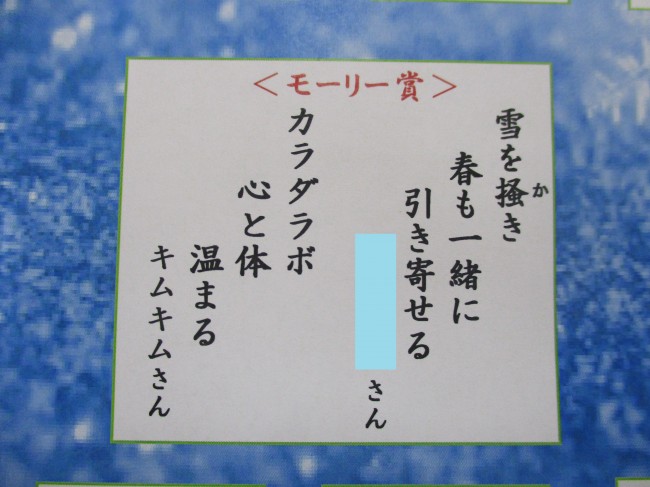 <モーリー賞>
雪を掻き
か
春も一緒に
引き寄せる
さん
カラダラボ
心と体
温まる
キムキムさん